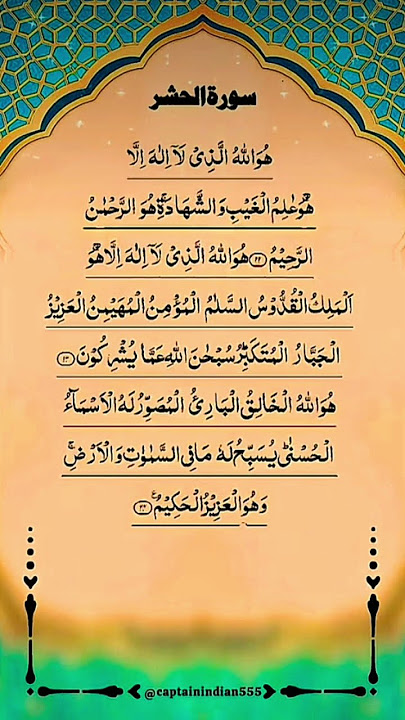 سورة الحشر
هُوَ اللّٰهُ الَّذِیْ لَاۤ اِلٰهَ اِلَّا
هُوَ ۚ عٰلِمُ الْغَیْبِ وَالشَّهَادَةِ ۚ هُوَ الرَّحْمٰنُ
الرَّحِیْمُ ﴿۲۲﴾ هُوَ اللّٰهُ الَّذِیْ لَاۤ اِلٰهَ اِلَّا هُوَ ۚ
اَلْمَلِكُ الْقُدُّوْسُ السَّلٰمُ الْمُؤْمِنُ الْمُهَیْمِنُ الْعَزِیْزُ
الْجَبَّارُ الْمُتَكَبِّرُ ؕ سُبْحٰنَ اللّٰهِ عَمَّا یُشْرِكُوْنَ ﴿۲۳﴾
هُوَ اللّٰهُ الْخَالِقُ الْبَارِئُ الْمُصَوِّرُ لَهُ الْاَسْمَآءُ
الْحُسْنٰی ؕ یُسَبِّحُ لَهٗ مَا فِی السَّمٰوٰتِ وَالْاَرْضِ ۚ
وَهُوَ الْعَزِیْزُ الْحَكِیْمُ ﴿۲۴﴾
@captainindian555